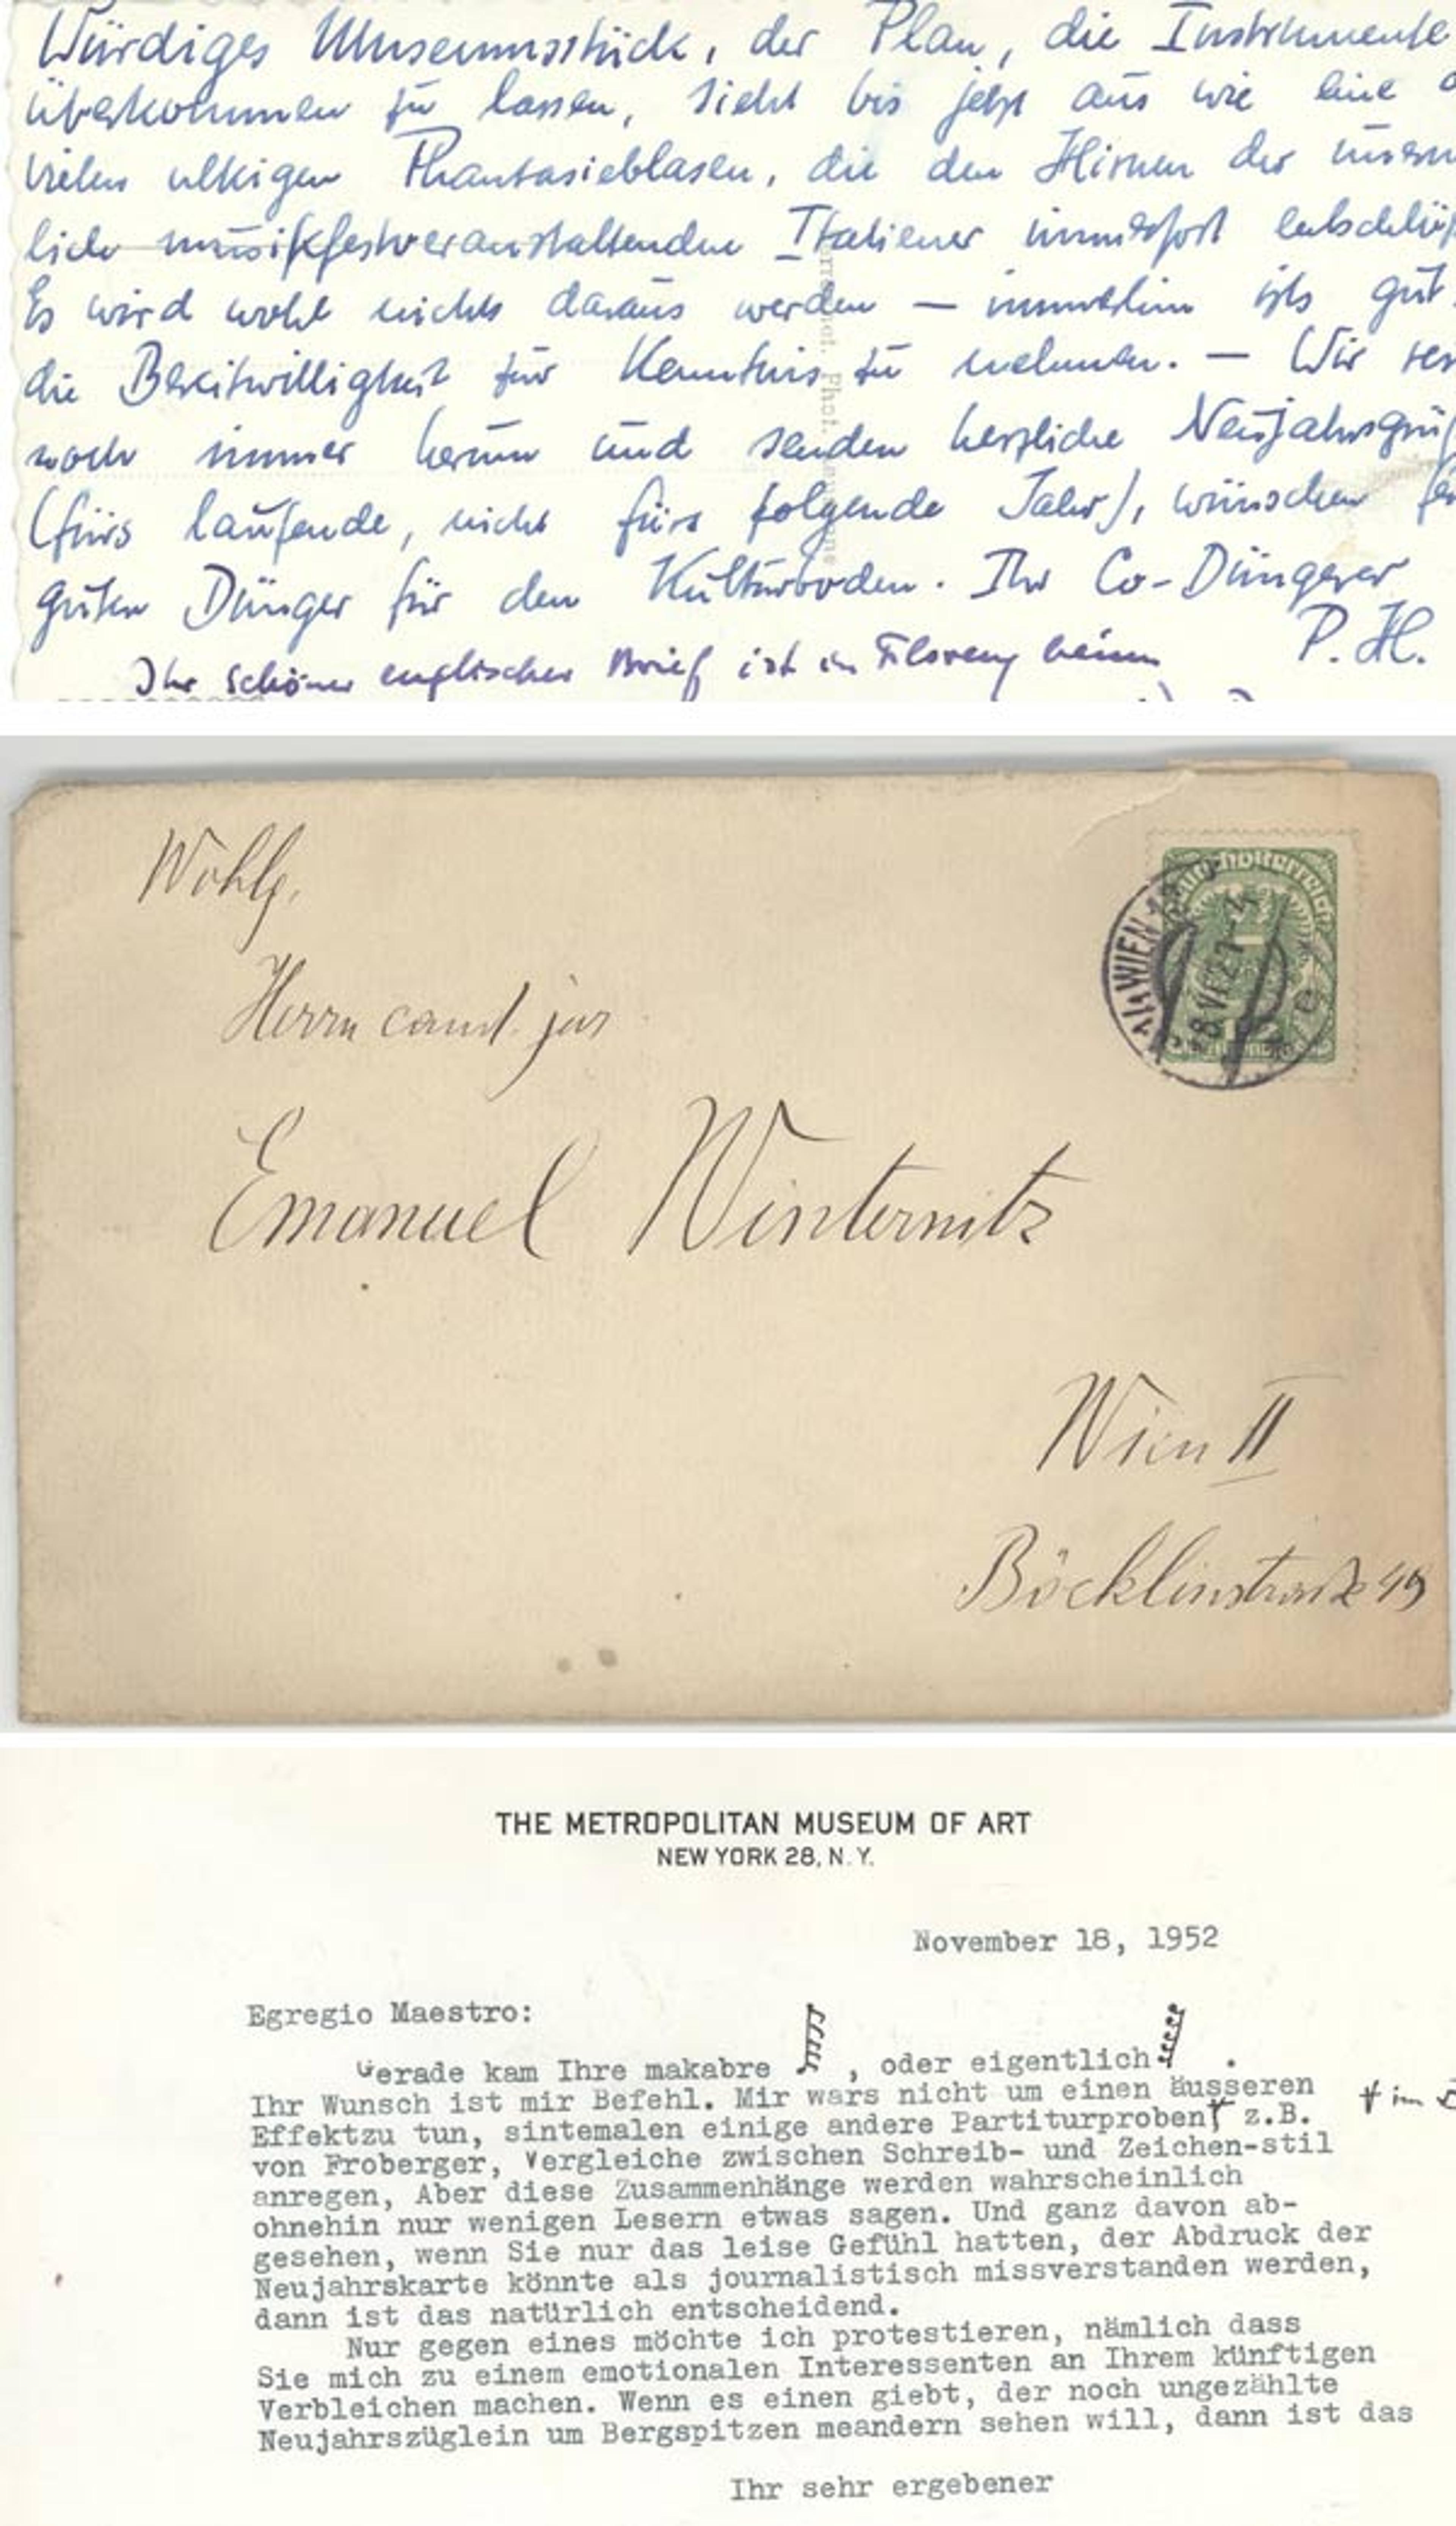 Würdiges Museumsstück, der Plan, die Instrumente
überkommen zu lassen, sieht bis jetzt aus wie eine d
vielen ulkigen Phantasieblasen, die den Hirnen der unerm
lich musikfestveranstaltenden Italiener immerfort entschlüp
Es wird wohl nichts daraus werden – immerhin ists gut
die Bereitwilligkeit zur Kenntnis zu nehmen. – Wir
noch immer herum und senden herzliche Neujahrsgrü
(fürs laufende, nicht fürs folgende Jahr), wünschen
guten Dünger für den Kulturboden. Ihr Co-Düngerer
P. H.
Ihr schöner englischer Brief ist in Florenz
Wohlg.
Herrn cand. jur
Emanuel Winternitz
Wien II
Böcklinstraße 49
WIEN
8.VI.21
THE METROPOLITAN MUSEUM OF ART
NEW YORK 28, N. Y.
November 18, 1952
Egregio Maestro:
Gerade kam Ihre makabre , oder eigentlich .
Ihr Wunsch ist mir Befehl. Mir wars nicht um einen äusseren
Effektzu tun, sintemalen einige andere Partiturproben z.B.
von Froberger, Vergleiche zwischen Schreib- und Zeichen-stil
anregen, Aber diese Zusammenhänge werden wahrscheinlich
ohnehin nur wenigen Lesern etwas sagen. Und ganz davon ab-
gesehen, wenn Sie nur das leise Gefühl hatten, der Abdruck der
Neujahrskarte könnte als journalistisch missverstanden werden,
dann ist das natürlich entscheidend.
Nur gegen eines möchte ich protestieren, nämlich dass
Sie mich zu einem emotionalen Interessenten an Ihrem künftigen
Verbleichen machen. Wenn es einen giebt, der noch ungezählte
Neujahrszüglein um Bergspitzen meandern sehen will, dann ist das
Ihr sehr ergebener